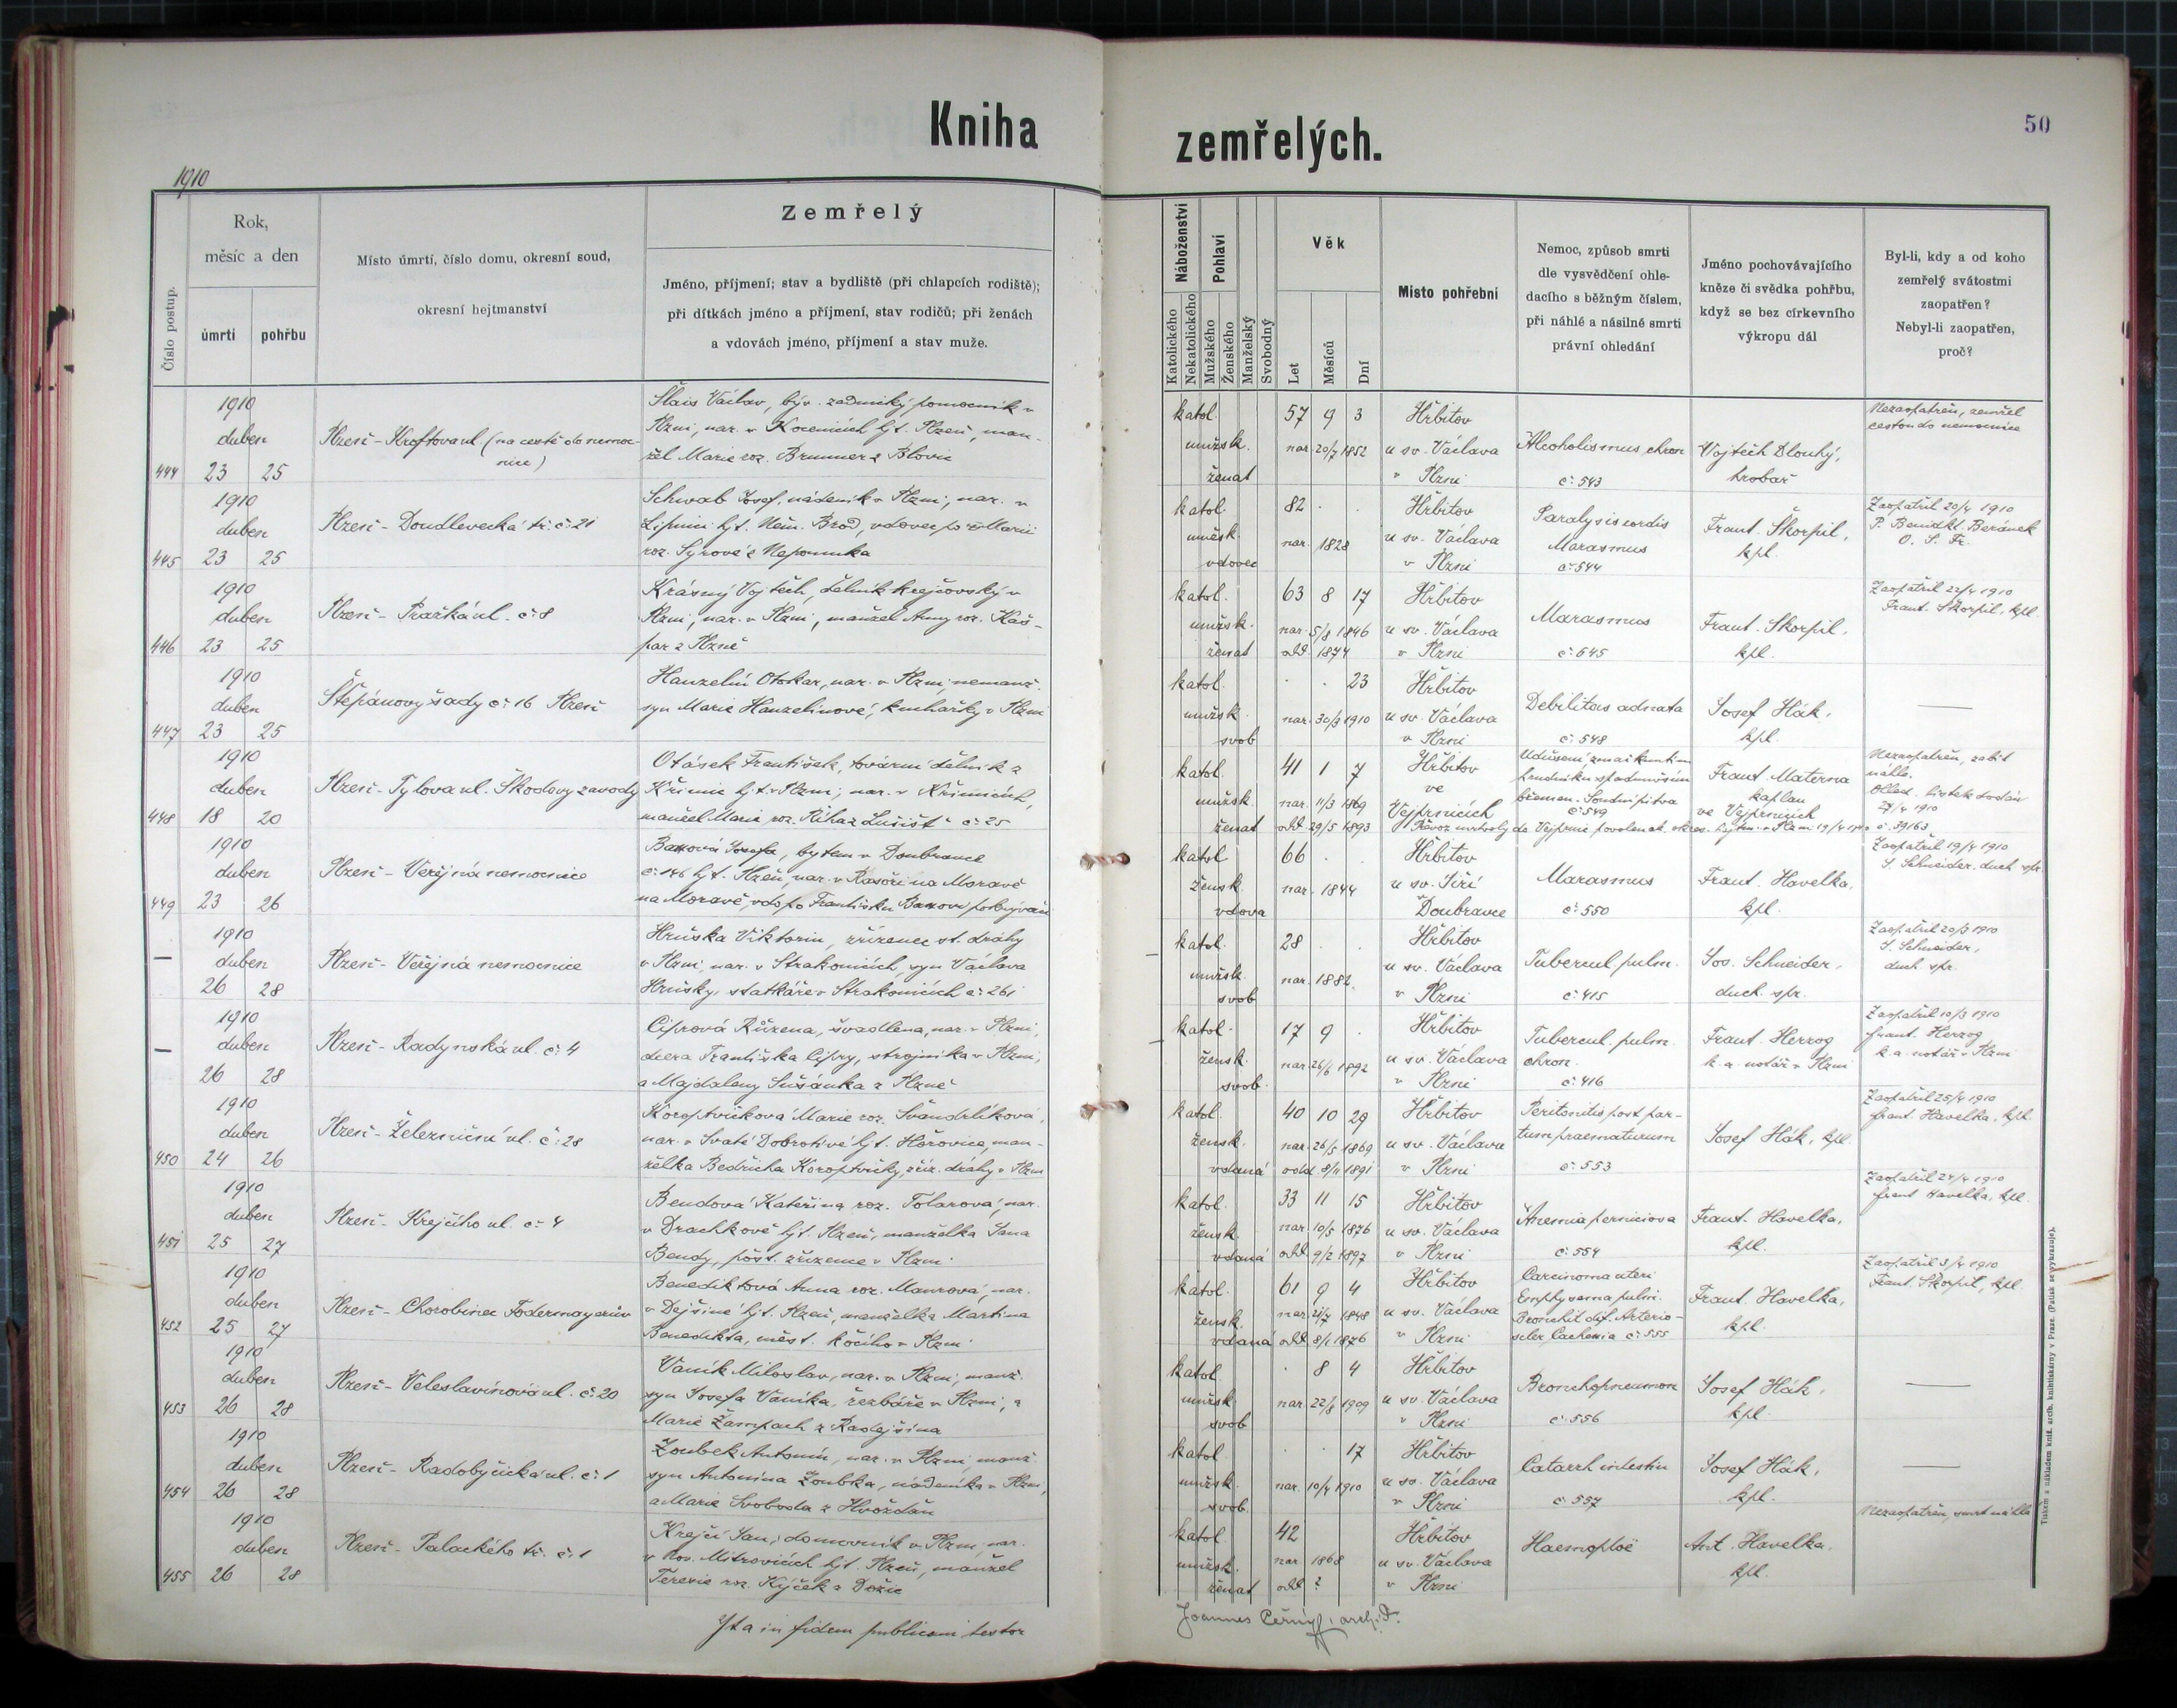 Kniha
zemřelých.
50
1910
Číslo postup.
Rok,
měsíc a den
úmrtí
pohřbu
Místo úmrtí, číslo domu, okresní soud,
okresní hejtmanství
Zemřelý
Jméno, příjmení; stav a bydliště (při chlapcích rodiště);
při dítkách jméno a příjmení, stav rodičů; při ženách
a vdovách jméno, příjmení a stav muže.
Náboženství
Katolického
Nekatolického
Pohlaví
Mužského
Ženského
Manželský
Svobodný
Věk
Let
Měsíců
Dní
Místo pohřební
Nemoc, způsob smrti
dle vysvědčení ohle-
dacího s běžným číslem,
při náhlé a násilné smrti
právní ohledání
Jméno pochovávajícího
kněze či svědka pohřbu,
když se bez církevního
výkropu dál
Byl-li, kdy a od koho
zemřelý svátostmi
zaopatřen?
Nebyl-li zaopatřen,
proč?
444
1910
duben
23 25
Plzeň - Kroftova ul (na cestě do nemoc-
nice)
Šlais Václav, býv. zednický pomocník v
Plzni, nar. v hjt. Plzeň, man-
žel Marie roz. Brunner z Blovic
katol.
mužsk.
ženat
57 9 3
nar. 20/7 1852
Hřbitov
u sv. Václava
v Plzni
Alcoholismus chron
č. 543
Vojtěch Dlouhý,
hrobař
Nezaopatřen, zemřel
cestou do nemocnice
445
1910
duben
23 25
Plzeň - Doudlevecká tř. č. 21
Schwab Josef, nádeník v Plzni, nar. v
Lipnici hjt. Něm. Brod, vdovec po Marii
roz. Syrové z Nepomuka
katol.
mužsk.
vdovec
82 . .
nar. 1828
Hřbitov
u sv. Václava
v Plzni
Paralysis cordis
Marasmus
č. 544
Frant. Škorpil,
kpl.
Zaopatřil 20/4 1910
P. Benedikt Beránek
O. S. Fr.
446
1910
duben
23 25
Plzeň - Pražská ul. č. 8
Krásný Vojtěch, dělník krejčovský v
Plzni, nar. v Plzni, manžel Anny roz. Kaš-
par z Plzně
katol.
mužsk.
ženat
63 8 17
nar. 5/8 1846
odd. 1874
Hřbitov
u sv. Václava
v Plzni
Marasmus
č. 545
Frant. Škorpil,
kpl.
Zaopatřil 22/4 1910
Frant. Škorpil, kpl.
447
1910
duben
23 25
Štěpánovy sady č. 16 Plzeň
Hanzelín Otokar, nar. v Plzni, nemanž.
syn Marie Hanzelínové, kuchařky v Plzni
katol.
mužsk.
svob
. . 23
nar. 30/3 1910
Hřbitov
u sv. Václava
v Plzni
Debilitas adnata
č. 548
Josef Hák,
kpl.
448
1910
duben
18 20
Plzeň - Tylova ul. Škodovy zavody
Otásek František, tovární dělník z
Křimic hjt. v Plzni, nar. v Křimicích,
manžel Marie roz. Říha z č. 25
katol.
mužsk.
ženat
41 1 7
nar. 11/3 1869
odd. 29/5 1893
Hřbitov
ve
Vejprnicích
Udušení, zmačknutím
hrudníku spadnuvším
břemen. Soudní pitva
č. 549
Frant. Materna
kaplan
ve Vejprnicích
Převoz mrtvoly do Vejprnic povolen ok. okres. hejtm. v Plzni 19/4 1910 č. 39163
Nezaopatřen, zabit
náhle.
Ohled. lístek dodán
27/4 1910
449
1910
duben
23 26
Plzeň - Veřejná nemocnice
Josefa, bytem v Doubravce
č. 146 hjt. Plzeň, nar. v na Moravě
na Moravě, vdo po Františku
katol
žensk.
vdova
66 . .
nar. 1844
Hřbitov
u sv. Jiří
Doubravce
Marasmus
č. 550
Frant. Havelka,
kpl.
Zaopatřil 19/4 1910
J. Schneider, duch. spr.
1910
duben
26 28
Plzeň - Veřejná nemocnice
Hruška Viktorin, zřízenec st. dráhy
v Plzni, nar. v Strakonicích, syn Václava
Hrušky, statkáře v Strakonicích č. 261
katol.
mužsk.
svob
28 . .
nar. 1882
Hřbitov
u sv. Václava
v Plzni
Tubercul pulm.
č. 415
Jos. Schneider,
duch. spr.
Zaopatřil 20/3 1910
J. Schneider,
duch. spr.
1910
duben
26 28
Plzeň - Radynská ul. č. 4
Ciprová Růžena, švadlena, nar. v Plzni,
dcera Františka Cipry, strojníka v Plzni,
a Majdaleny Sušánka z Plzně
katol.
žensk.
svob.
17 9 .
nar. 26/6 1892
Hřbitov
u sv. Václava
v Plzni
Tubercul. pulm.
chron.
č. 416
Frant. Herzog
k. a. notář v Plzni
Zaopatřil 10/3 1910
Frant. Herzog
k. a. notář v Plzni
450
1910
duben
24 26
Plzeň - Železniční ul. č. 28
Koroptvičková Marie roz. Švandrlíková,
nar. v Svaté Dobrotivé hjt. Hořovice, man-
želka Bedřicha Koroptvičky, zříz. dráhy v Plzni
katol.
žensk.
vdaná
40 10 29
nar. 26/5 1869
odd. 8/11 1891
Hřbitov
u sv. Václava
v Plzni
Peritonitis post par-
tum praematurum
č. 553
Josef Hák, kpl.
Zaopatřil 25/4 1910
Frant. Havelka, kpl.
451
1910
duben
25 27
Plzeň - Krejčího ul. č. 4
Bendová Kateřina roz. Tolarová, nar.
v Drachkově hjt. Plzeň, manželka Jana
Bendy, pošt. zřízence v Plzni
katol.
žensk.
vdaná
33 11 15
nar. 10/5 1876
odd. 9/2 1897
Hřbitov
u sv. Václava
v Plzni
Anemia perniciosa
č. 554
Frant. Havelka,
kpl.
Zaopatřil 24/4 1910
Frant Havelka, kpl.
452
1910
duben
25 27
Plzeň - Chorobinec Fodermayerův
Benediktová Anna roz. Maurová, nar.
v Dejšině hjt. Plzeň, manželka Martina
Benedikta, měst. kočího v Plzni
katol.
žensk.
vdaná
61 9 4
nar. 21/7 1848
odd. 8/1 1876
Hřbitov
u sv. Václava
v Plzni
Carcinoma uteri
Emphysema pulm.
Bronchit dif. Arterio-
scler. Cachexia č. 555
Frant. Havelka,
kpl.
Zaopatřil 3/4 1910
Frant. Škorpil, kpl.
453
1910
duben
26 28
Plzeň - Veleslavínova ul. č. 20
Vaník Miloslav, nar. v Plzni, manž.
syn Josefa Vaníka, řezbáře v Plzni, a
Marie Žampach z Radějšína
katol.
mužsk.
svob
. 8 4
nar. 22/8 1909
Hřbitov
u sv. Václava
v Plzni
Bronchopneumon
č. 556
Josef Hák,
kpl.
454
1910
duben
26 28
Plzeň - Radobyčická ul. č. 1
Zoubek Antonín, nar. v Plzni, manž.
syn Antonína Zoubka, nádeníka v Plzni,
a Marie Svoboda z Hvožďan
katol.
mužsk.
svob.
. . 17
nar. 10/4 1910
Hřbitov
u sv. Václava
v Plzni
Catarrh intestin
č. 557
Josef Hák,
kpl.
455
1910
duben
26 28
Plzeň - Palackého tř. č. 1
Krejčí Jan, domovník v Plzni, nar.
v Kos. Mitrovicích hjt. Plzeň, manžel
Terezie roz. Kýček z Dožic
katol.
mužsk.
ženat
42
nar 1868
odd ?
Hřbitov
u sv. Václava
v Plzni
Haemoploë
Ant. Havelka,
kpl.
Nezaopatřen, smrt náhlá
Ita in fidem publicam testor
Joannes Černý, arch. D.